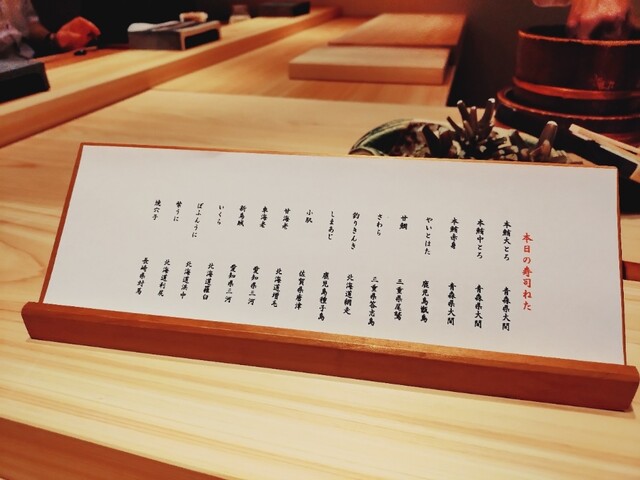 本日の寿司ねた
本鮪大とろ 青森県大間
本鮪中とろ 青森県大間
本鮪赤身 青森県大間
やいとはた 鹿児島甑島
甘鯛 三重県尾鷲
さわら 三重県答志島
釣りきんき 北海道網走
しまあじ 鹿児島種子島
小肌 佐賀県唐津
甘海老 北海道増毛
車海老 愛知県三河
新烏賊 愛知県三河
いくら 北海道羅臼
ばふんうに 北海道浜中
紫うに 北海道利尻
焼穴子 長崎県対馬